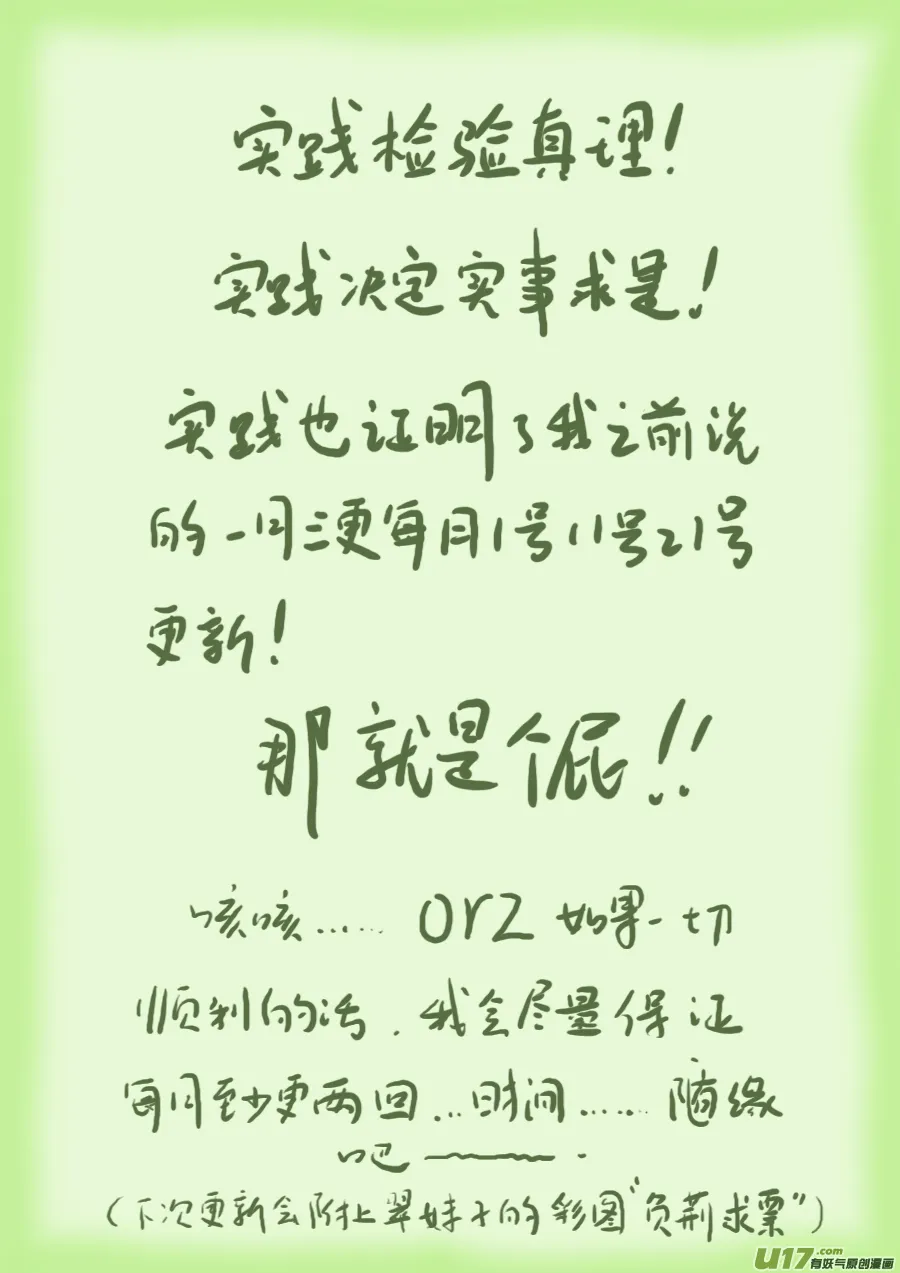 实践检验真理!
实践决定实事求是!
实践也证明了我之前说
的一月三更每月1号11号21号
更新!
那就是个屁!!
咳咳…… orz 如果一切
顺利的话.我会尽量保证
每月至少更两回…时间…… 随缘
吧——.
(下次更新会附上翠妹子的彩图“负荆求票”)
U17.com
有妖气原创漫画